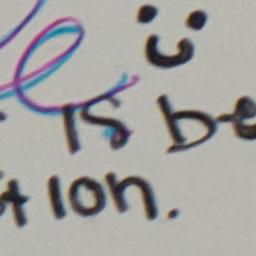 is be
tion.